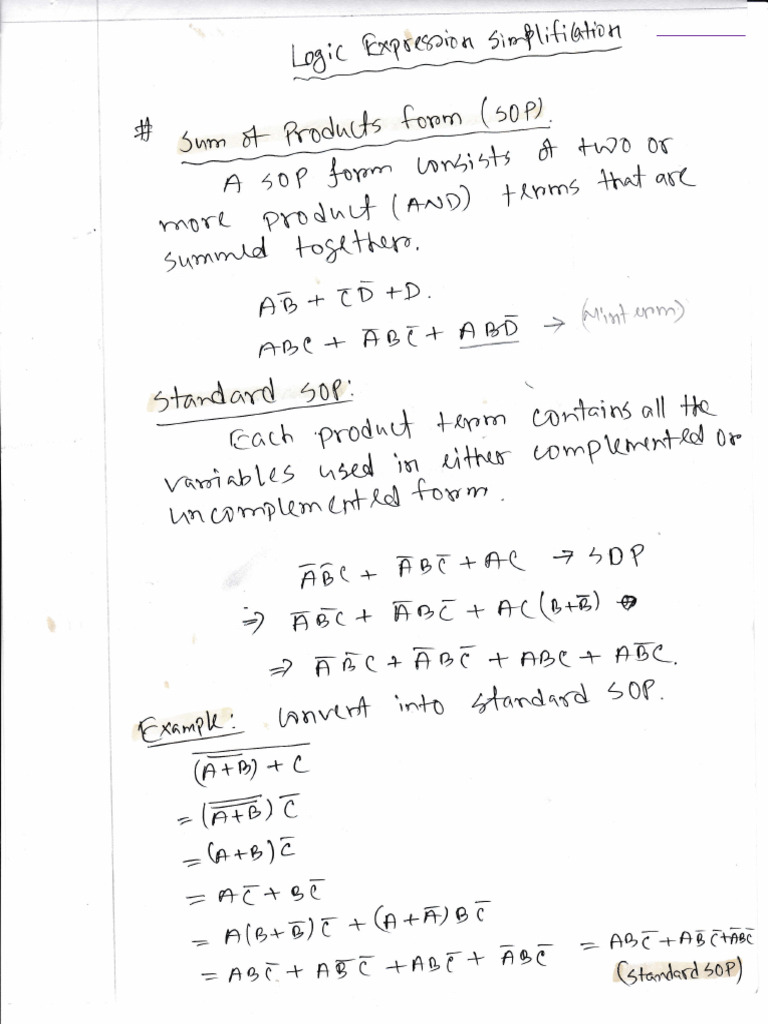 Logic Expression Simplifiation
# Sum of Products form (SOP).
A SOP form consists of two or
more product (AND) terms that are
summed together.
AB̅ + C̅D̅ + D.
ABC + A̅BC̅ + ABD̅ → (Minterm)
Standard SOP:
Each product term contains all the
variables used in either complemented or
uncomplemented form.
A̅B̅C + A̅BC̅ + AC → SOP
⇒ A̅B̅C + A̅BC̅ + AC(B+B̅)
⇒ A̅B̅C + A̅BC̅ + ABC + AB̅C.
Example: Convert into standard SOP.
$\overline{\overline{(A+B)} + C}$
= $(\overline{\overline{A+B}})$ C̅
= (A+B)C̅
= AC̅ + BC̅
= A(B+B̅)C̅ + (A+A̅)BC̅
= ABC̅ + AB̅C̅ + ABC̅ + A̅BC̅ = ABC̅ + AB̅C̅ + A̅BC̅
(Standard SOP)